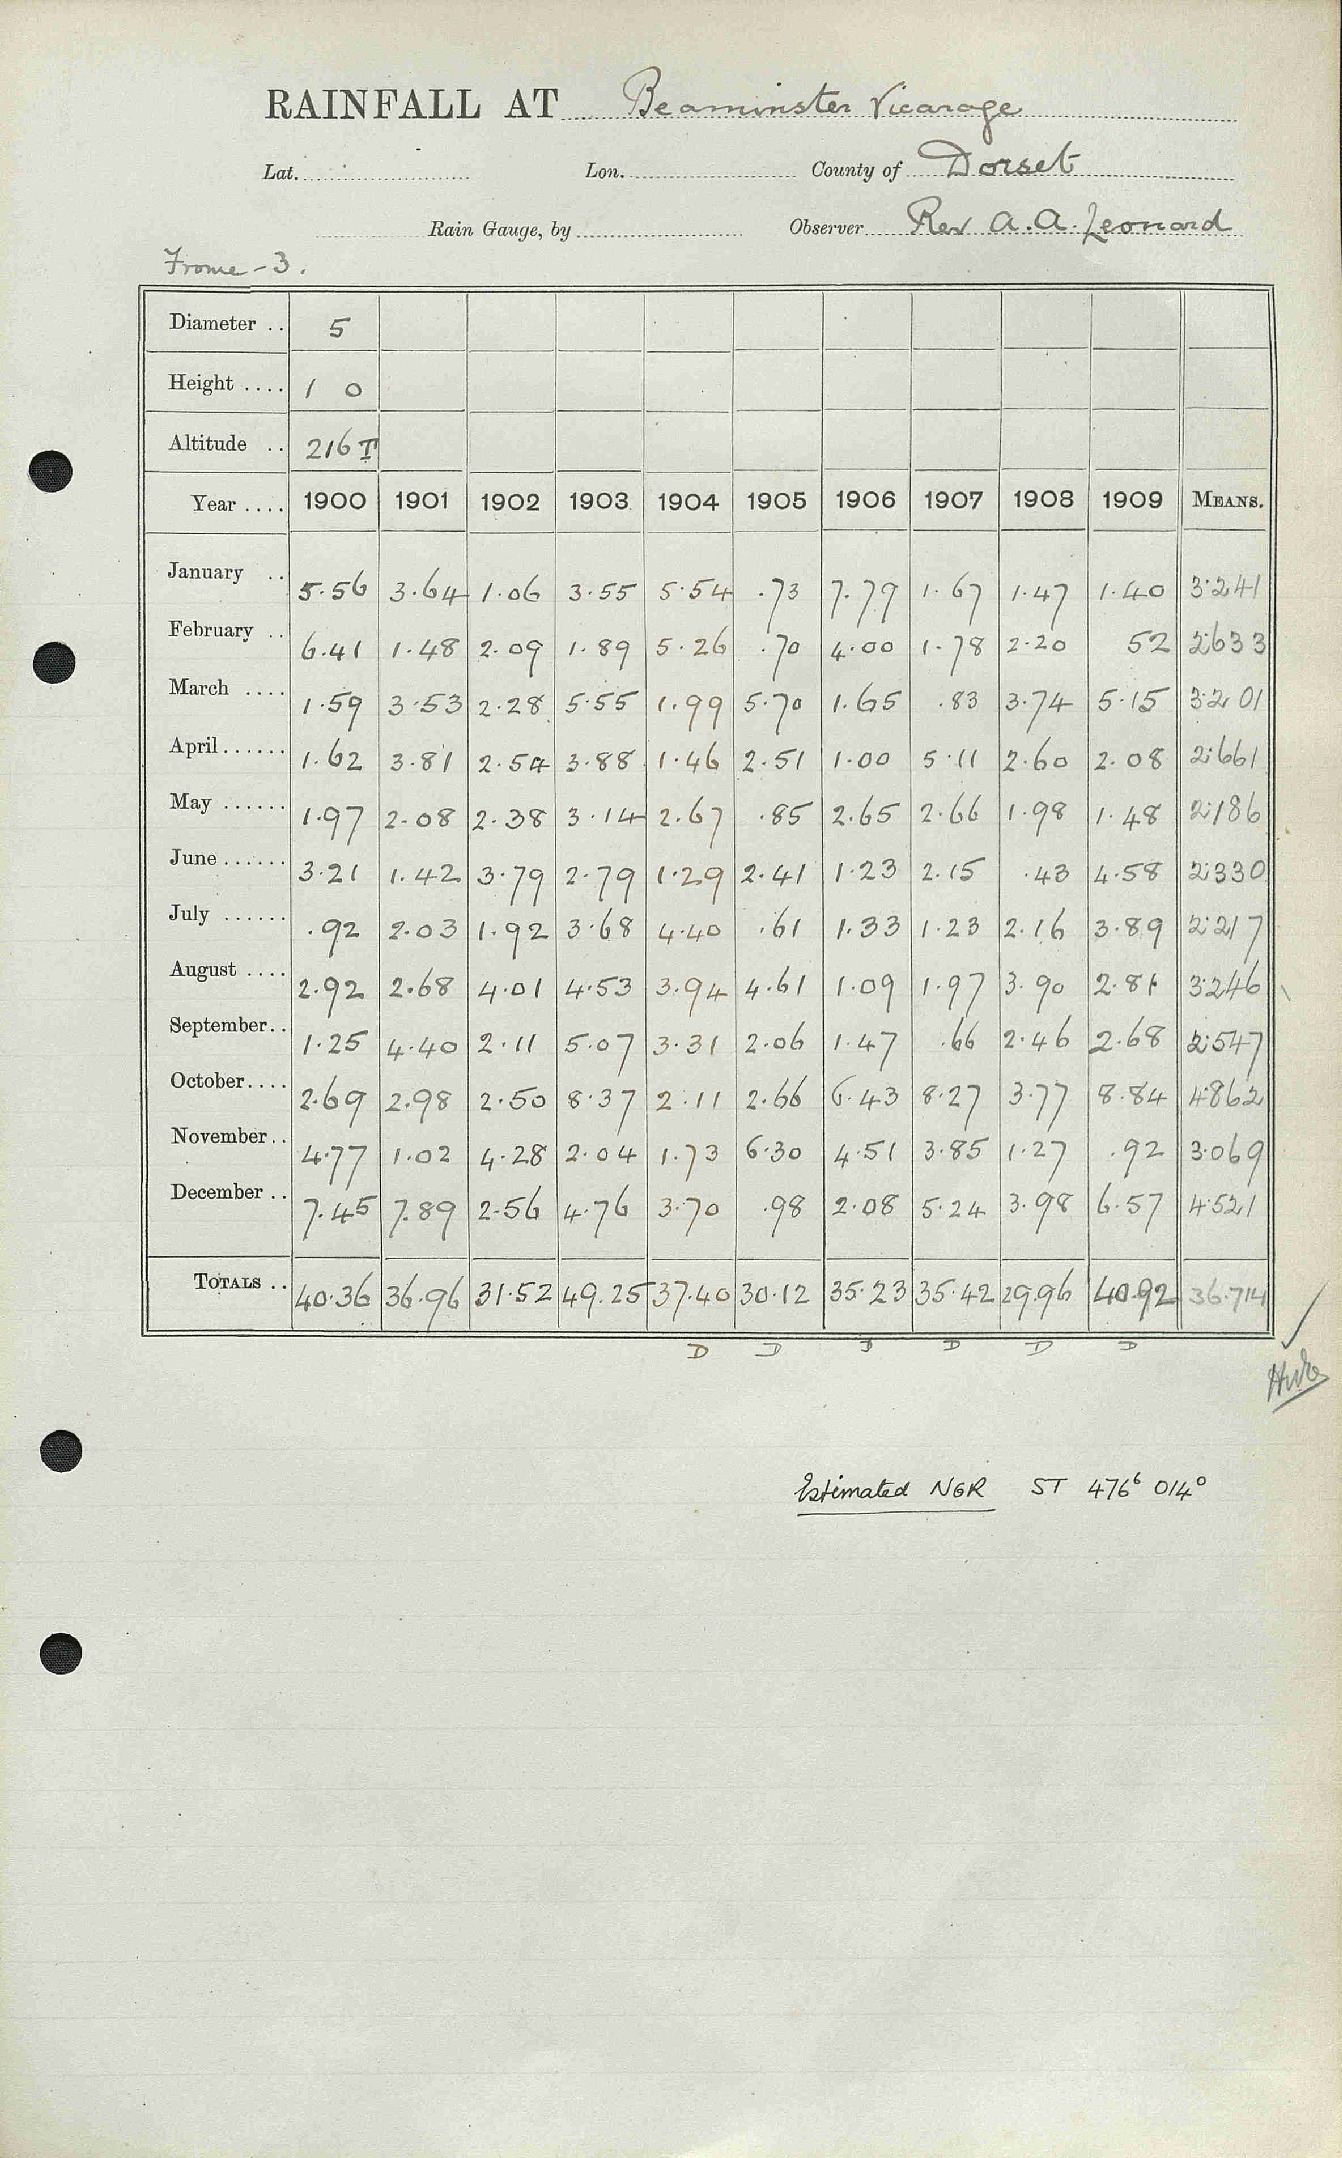 RAINFALL AT Beaminster Vicarage
Lat. Lon. County of Dorset
Rain Gauge, by Observer Rev A. A. Leonard
Frome - 3.
Diameter .. 5
Height .... 1 0
Altitude .. 216 T
Year .... 1900 1901 1902 1903 1904 1905 1906 1907 1908 1909 MEANS.
January .. 5.56 3.64 1.06 3.55 5.54 .73 7.79 1.67 1.47 1.40 3.241
February .. 6.41 1.48 2.09 1.89 5.26 .70 4.00 1.78 2.20 52 2.633
March .... 1.59 3.53 2.28 5.55 1.99 5.70 1.65 .83 3.74 5.15 3.201
April...... 1.62 3.81 2.54 3.88 1.46 2.51 1.00 5.11 2.60 2.08 2.661
May ...... 1.97 2.08 2.38 3.14 2.67 .85 2.65 2.66 1.98 1.48 2.186
June ...... 3.21 1.42 3.79 2.79 1.29 2.41 1.23 2.15 .43 4.58 2.330
July ...... .92 2.03 1.92 3.68 4.40 .61 1.33 1.23 2.16 3.89 2.217
August .... 2.92 2.68 4.01 4.53 3.94 4.61 1.09 1.97 3.90 2.81 3.246
September.. 1.25 4.40 2.11 5.07 3.31 2.06 1.47 .66 2.46 2.68 2.547
October.... 2.69 2.98 2.50 8.37 2.11 2.66 6.43 8.27 3.77 8.84 4.862
November.. 4.77 1.02 4.28 2.04 1.73 6.30 4.51 3.85 1.27 .92 3.069
December .. 7.45 7.89 2.56 4.76 3.70 .98 2.08 5.24 3.98 6.57 4.521
TOTALS .. 40.36 36.96 31.52 49.25 37.40 30.12 35.23 35.42 29.96 40.92 36.714
D D D D D D
Estimated NGR ST 476⁶ 014⁰